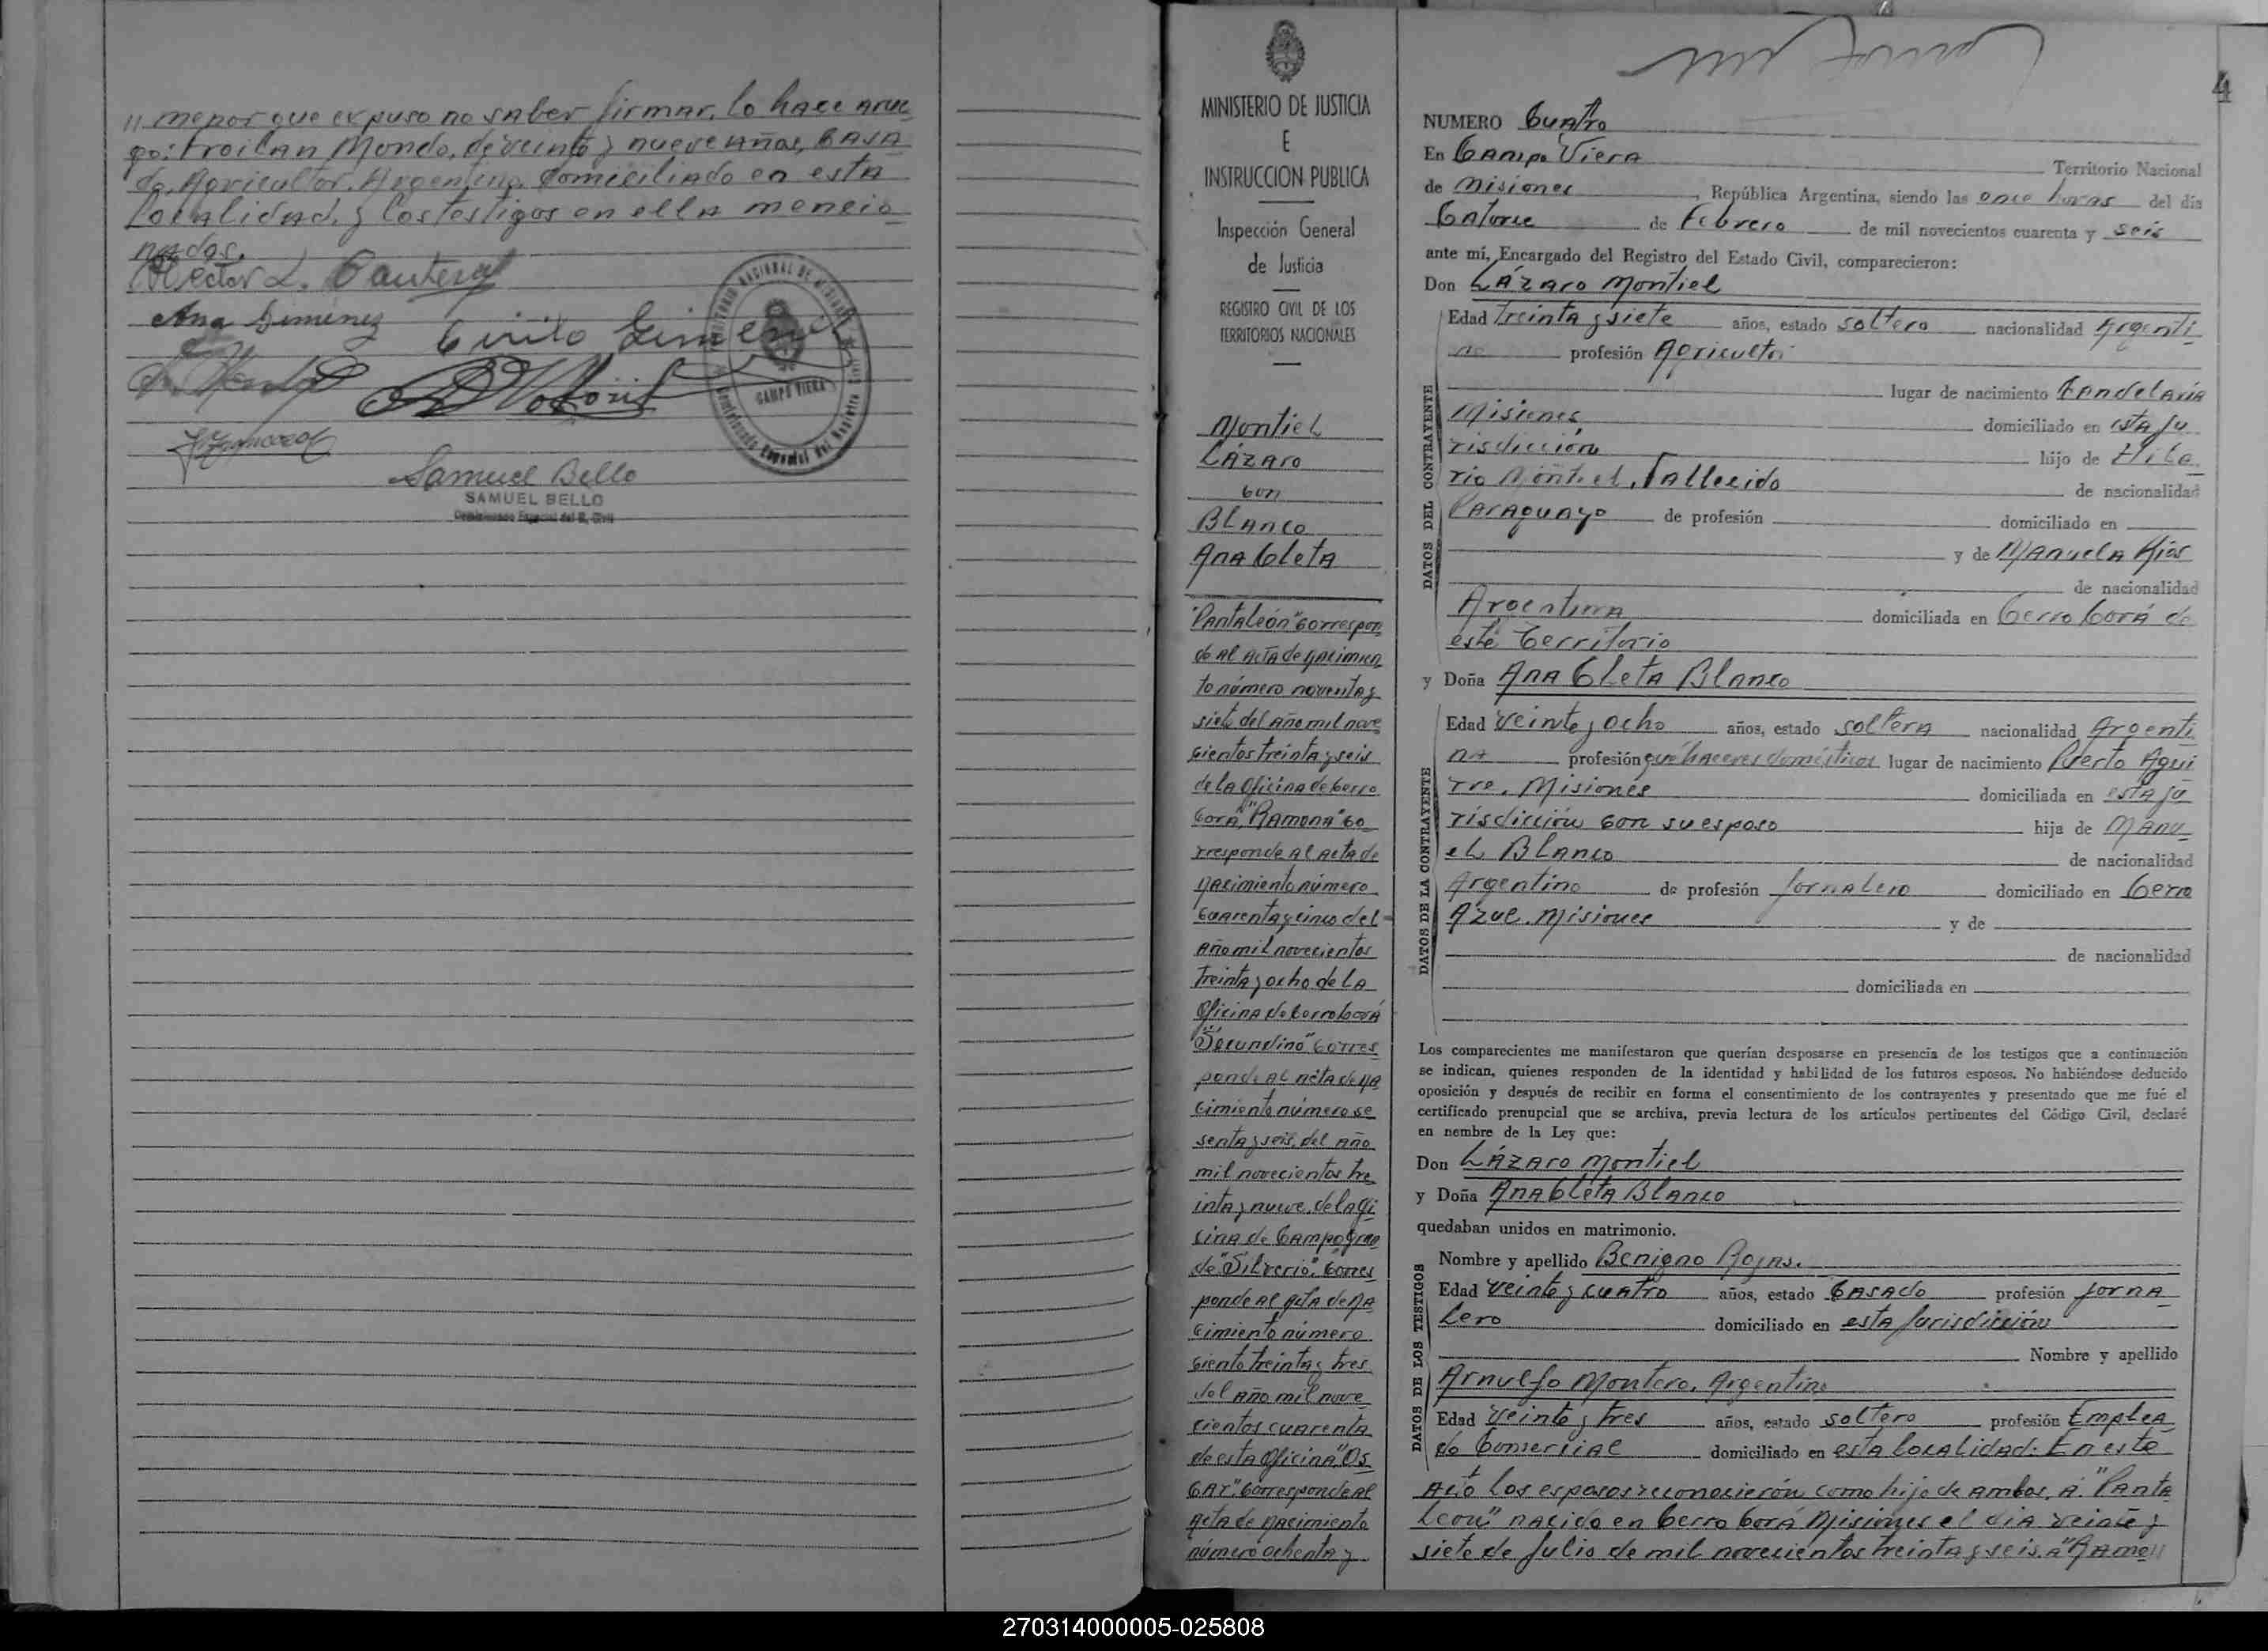 " menor que expuso no saber firmar, lo hace a rue
go: Froilan Mondo, de veinte y nueve años, casa
do, Agricultor, Argentino, domiciliado en esta
localidad, y los testigos en ella mencio
nados.
Hector L.
Ana Gimenez
Cirilo Gimenez
CAMPO VIERA
Samuel Bello
SAMUEL BELLO
Comisionado Especial del R. Civil
MINISTERIO DE JUSTICIA
E
INSTRUCCION PUBLICA
Inspección General
de Justicia
REGISTRO CIVIL DE LOS
TERRITORIOS NACIONALES
Montiel
Lázaro
con
Blanco
Ana Cleta
"Pantaleón" correspon
de al acta de nacimien
to número noventa y
siete del año mil nove
cientos treinta y seis
de la oficina de Cerro
Corá, "Ramona" co
rresponde al acta de
nacimiento número
cuarenta y cinco del
año mil novecientos
treinta y ocho de la
oficina de Cerro Corá
"Secundino" corres
ponde al acta de na
cimiento número se
senta y seis, del año
mil novecientos tre
inta y nueve, de la ofi
cina de Campo Gran
de "Silverio". Corres
ponde al acta de na
cimiento número
ciento treinta y tres
del año mil nove
cientos cuarenta
de esta oficina, "Os
car". Corresponde al
acta de nacimiento
número ochenta y
4
NUMERO Cuatro
En Campo Viera Territorio Nacional
de Misiones, República Argentina, siendo las once horas del día
Catorce de Febrero de mil novecientos cuarenta y seis
ante mí, Encargado del Registro del Estado Civil, comparecieron:
Don Lázaro Montiel
DATOS DEL CONTRAYENTE
Edad treinta y siete años, estado soltero nacionalidad Argenti
no profesión Agricultor
lugar de nacimiento Candelaria
Misiones domiciliado en esta ju
risdicción hijo de Hila
rio Montiel, fallecido de nacionalidad
Paraguayo de profesión domiciliado en
y de Manuela Rios
de nacionalidad
Argentina domiciliada en Cerro Corá de
este Territorio
y Doña Ana Cleta Blanco
DATOS DE LA CONTRAYENTE
Edad veinte y ocho años, estado soltera nacionalidad Argenti
na profesión quehaceres domésticos lugar de nacimiento Puerto Agui
rre. Misiones domiciliada en esta ju
risdicción con su esposo hija de Manu
el Blanco de nacionalidad
Argentino de profesión Jornalero domiciliado en Cerro
Azul. Misiones y de
de nacionalidad
domiciliada en
Los comparecientes me manifestaron que querían desposarse en presencia de los testigos que a continuación
se indican, quienes responden de la identidad y habilidad de los futuros esposos. No habiéndose deducido
oposición y después de recibir en forma el consentimiento de los contrayentes y presentado que me fué el
certificado prenupcial que se archiva, previa lectura de los artículos pertinentes del Código Civil, declaré
en nombre de la Ley que:
Don Lázaro Montiel
y Doña Ana Cleta Blanco
quedaban unidos en matrimonio.
DATOS DE LOS TESTIGOS
Nombre y apellido Benigno Rojas.
Edad veinte y cuatro años, estado casado profesión Jorna
lero domiciliado en esta jurisdicción
Nombre y apellido
Arnulfo Montero, Argentino
Edad veinte y tres años, estado soltero profesión Emplea
do Comercial domiciliado en esta localidad. En este
Acto los esposos reconocieron como hijo de ambos, á "Panta
león" nacido en Cerro Corá Misiones el dia veinte y
siete de Julio de mil novecientos treinta y seis. a "Ramo"
270314000005-025808